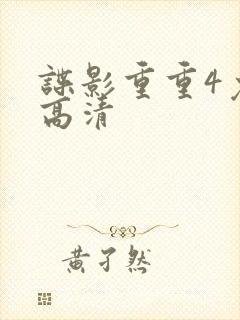 諜影重重4
高清
黄子然